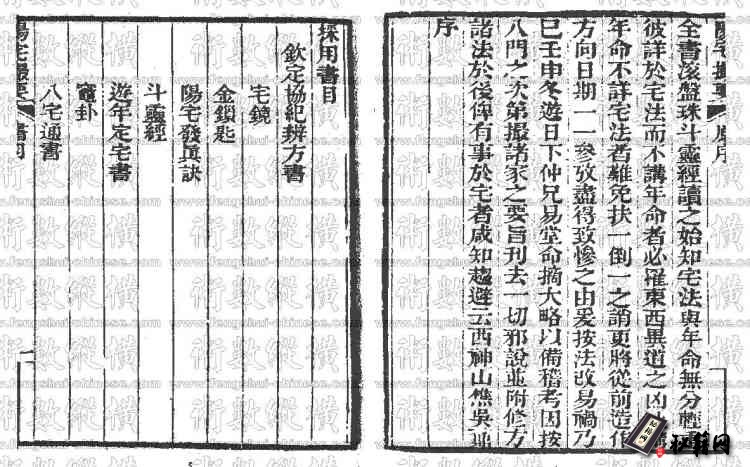 陽宅撮要 序
全書滾盤珠斗靈經讀之始知宅法與年命無分輕
彼詳於宅法而不講年命者必罹東西異道之凶
年命不詳宅法者難免扶一倒一之誚更將從前造作
方向日期一一參攷盡得致慘之由爰按法改易禍乃
已壬申冬遊日下仲兄易堂命摘大略以備稽考因按
八門之次第撮諸家之要旨刊去一切邪說並附修方
諸法於後俾有事於宅者咸知趨避云西神山樵吳鼒
序
採用書目
欽定協紀辨方書
宅鏡
金鎖匙
陽宅發眞訣
斗靈經
遊年定宅書
竈卦
八宅通書
陽宅撮要 書目
一
術數縱橫
www.fengshui-chinese.com
秘籍网